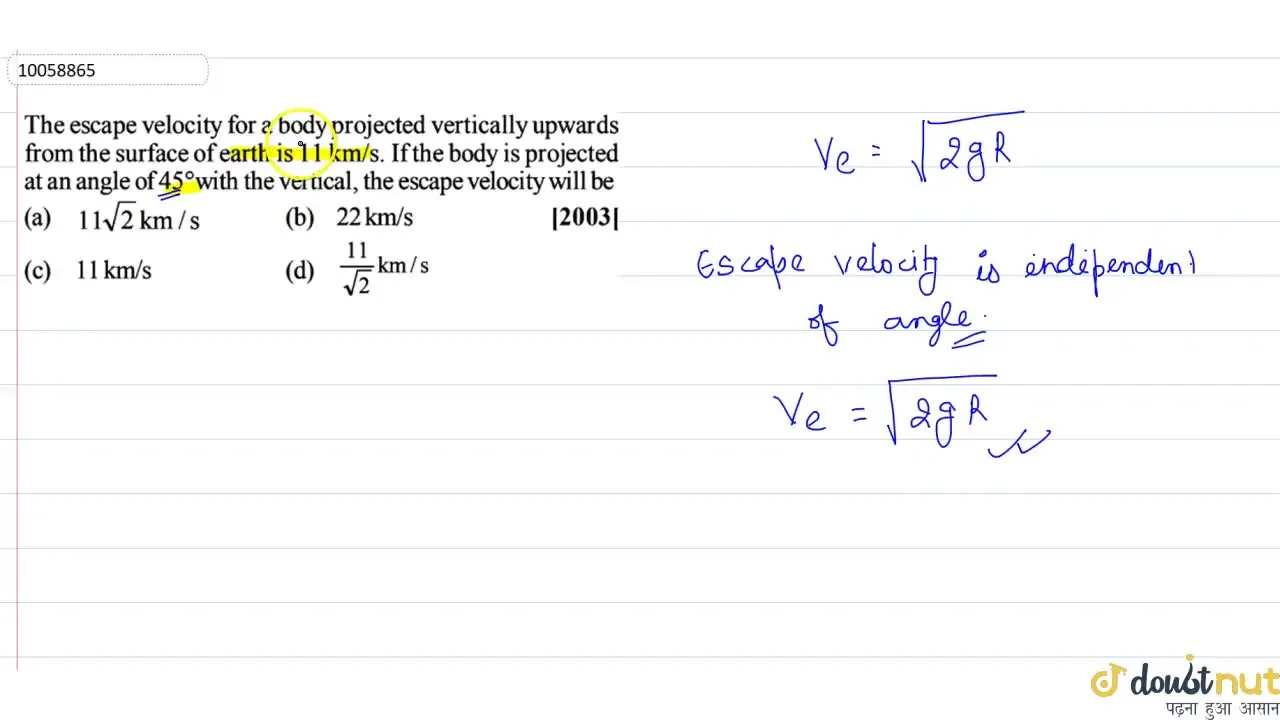 10058865
The escape velocity for a body projected vertically upwards
from the surface of earth is 11 km/s. If the body is projected
at an angle of 45° with the vertical, the escape velocity will be
(a) 11√2 km / s (b) 22 km/s [2003[
(c) 11 km/s (d) 11/√2 km / s
Ve = √2gR
Escape velocity is independent
of angle.
Ve = √2gR
doubtnut
पढ़ना हुआ आसान